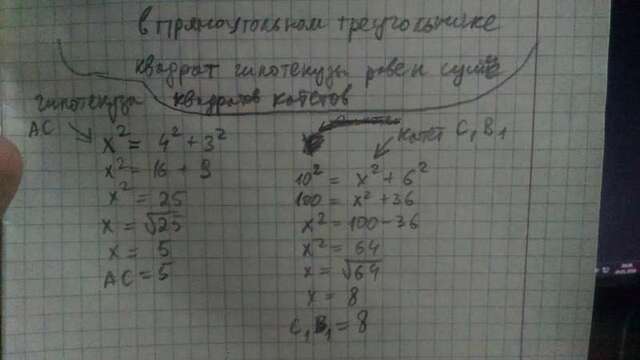 в прямоугольном треугольнике
квадрат гипотенузы равен сумме
квадратов катетов
гипотенуза
AC
x² = 4² + 3²
x² = 16 + 9
x² = 25
x = √25
x = 5
AC = 5
катет C₁B₁
10² = x² + 6²
100 = x² + 36
x² = 100 - 36
x² = 64
x = √64
x = 8
C₁B₁ = 8